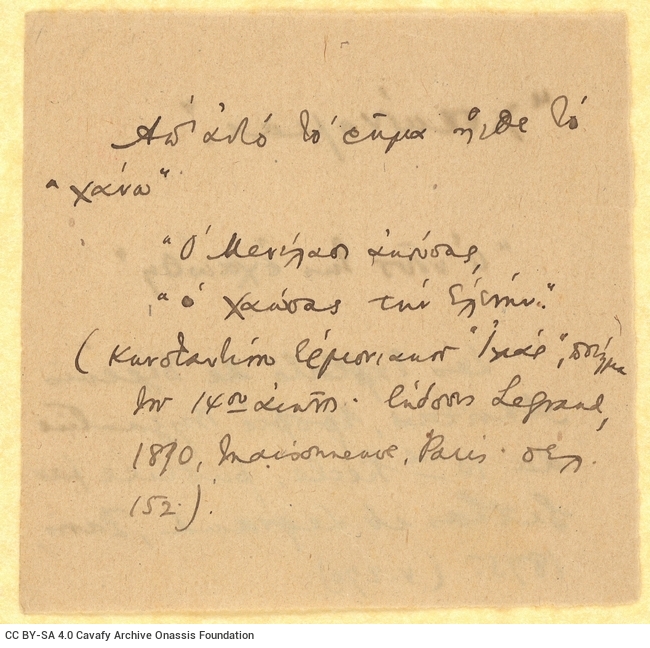 Απ' αυτό το ρήμα ήλθε το
"χάνω"
"Ο Μενέλαος ακούσας,
"ο χαώσας την Ελένην."
(Κωνσταντίνου Ερμονιακού "Ιλιάς", ποίημα
του 14ου αιώνος. Εκδόσεις Legrand,
1890, Maisonneuve, Paris. σελ.
152.)
CC BY-SA 4.0 Cavafy Archive Onassis Foundation